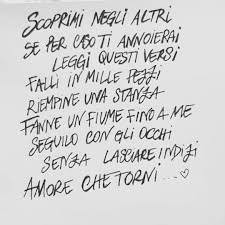 SCOPRIMI NEGLI ALTRI
SE PER CASO TI ANNOIERAI
LEGGI QUESTI VERSI
FALLI IN MILLE PEZZI
RIEMPINE UNA STANZA
FANNE UN FIUME FINO A ME
SEGUILO CON GLI OCCHI
SENZA LASCIARE INDIZI
AMORE CHE TORNI...♡